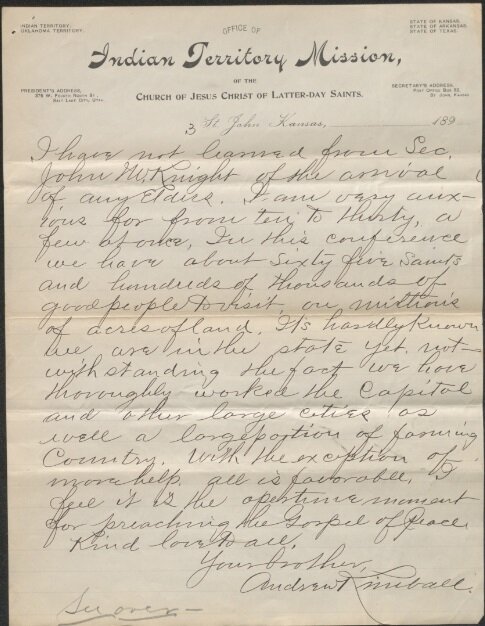 INDIAN TERRITORY.
OKLAHOMA TERRITORY.
STATE OF KANSAS.
STATE OF ARKANSAS.
STATE OF TEXAS.
OFFICE OF
Indian Territory Mission,
OF THE
CHURCH OF JESUS CHRIST OF LATTER-DAY SAINTS.
PRESIDENT'S ADDRESS,
375 W. FOURTH NORTH ST.,
SALT LAKE CITY, UTAH.
SECRETARY'S ADDRESS,
POST OFFICE BOX 32,
ST. JOHN, KANSAS
3 St. John Kansas, 189
I have not learned from Sec.
John McKnight of the arrival
of any Elders. I am very anx-
ious for from ten to thirty, a
few at once. In this conference
we have about Sixty five Saints
and hundreds of thousands of
good people to visit, on millions
of acres of land. It's hardly known
we are in the state yet. not-
withstanding the fact we have
thoroughly worked the Capitol
and other large cities as
well a large portion of farming
Country. With the exception of
more help, all is favorable. I
feel it is the opertune moment
for preaching the Gospel of Peace.
Kind love to all,
Your brother,
Andrew Kimball.
See over